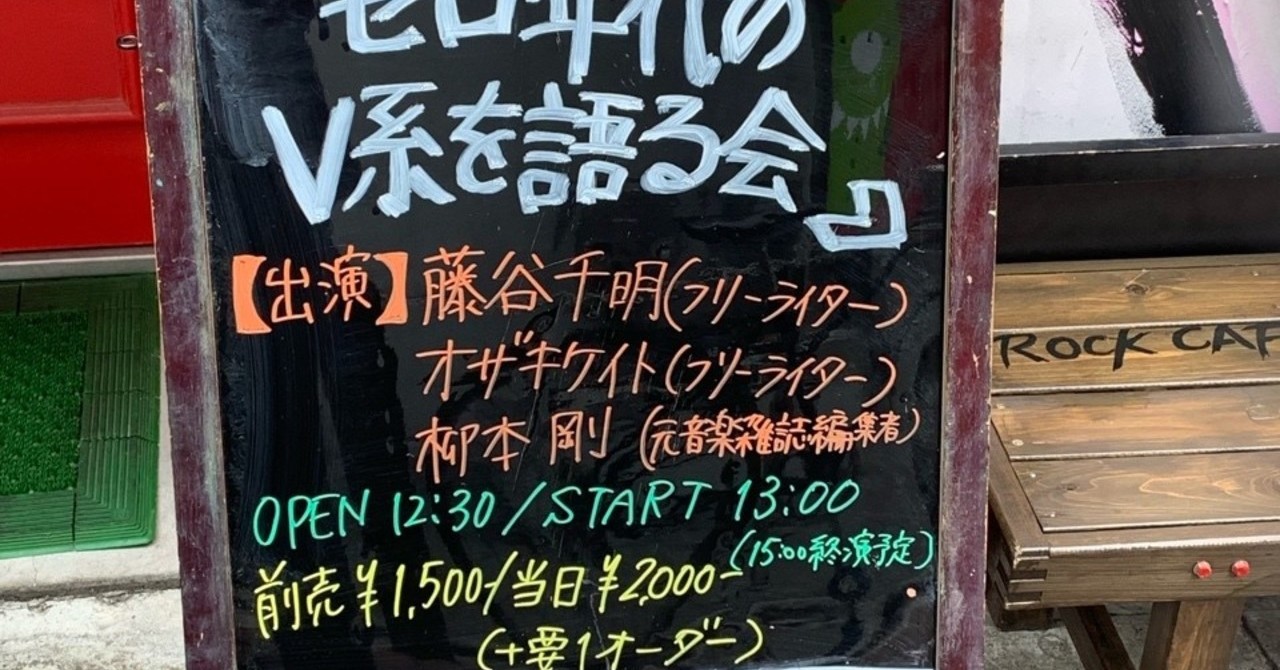 ゼロ年代の
V系を語る会』
【出演】藤谷千明(フリーライター)
オザキケイト(フリーライター)
柳本 剛 (元音楽雑誌編集者)
OPEN 12:30/START 13:00
(15:00終演予定)
前売¥1,500/当日¥2,000-
(+要1オーダー)
ROCK CAF